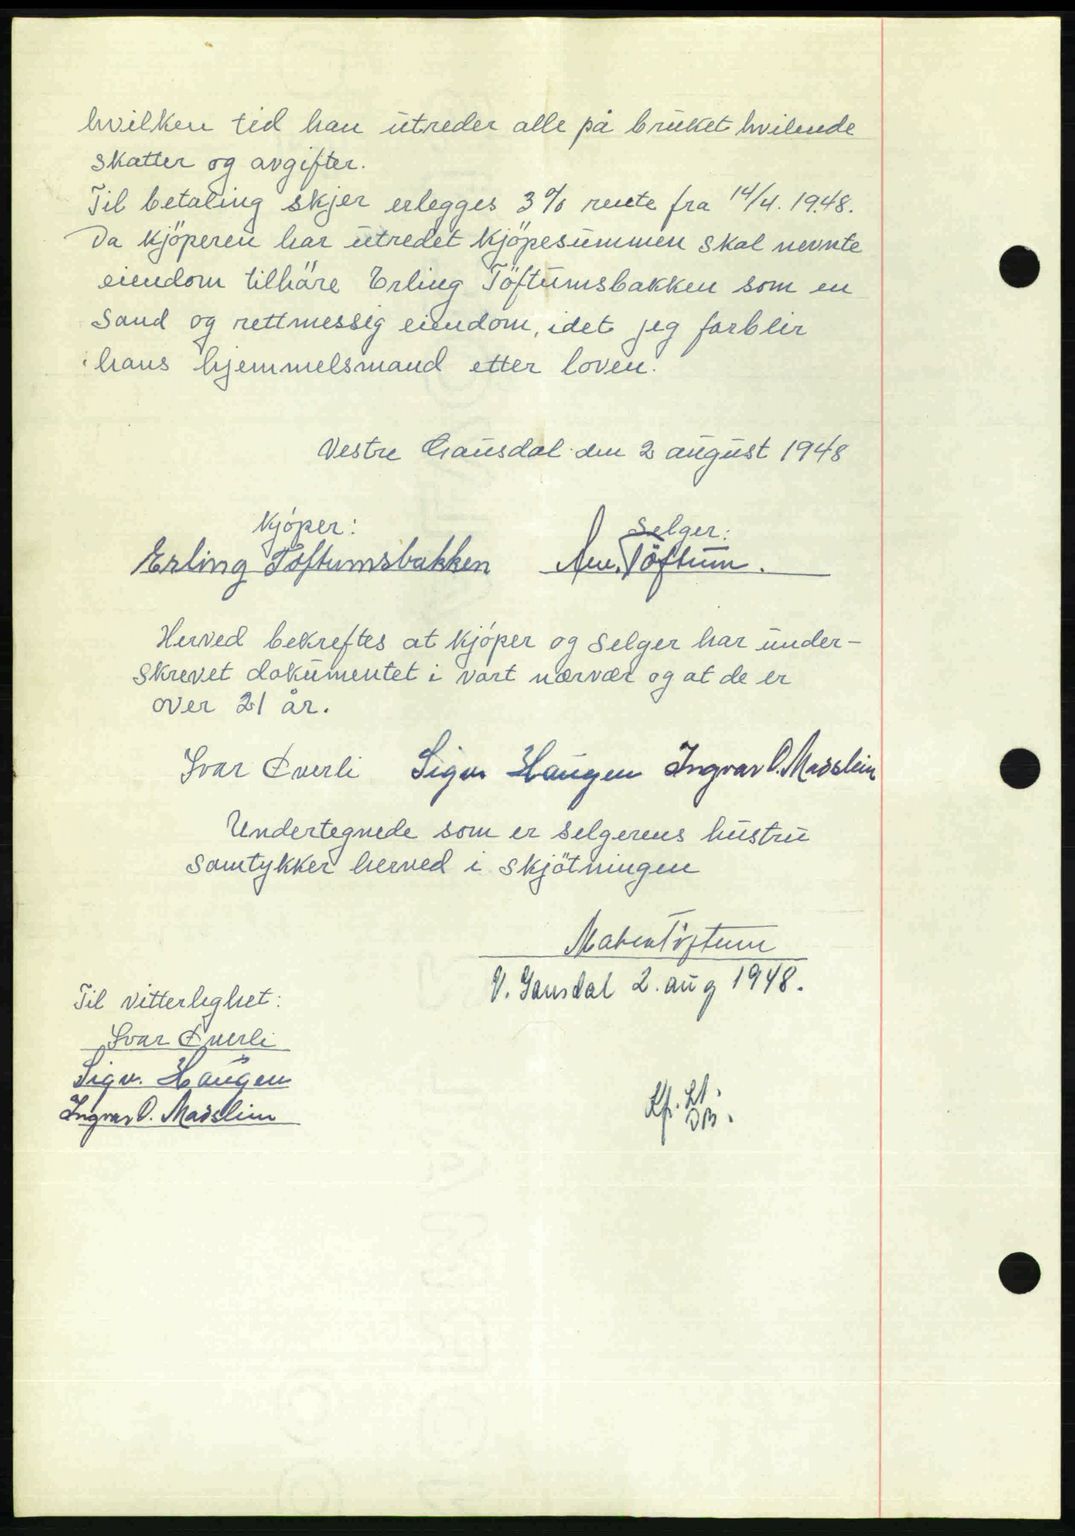 hvilken tid han utreder alle på bruket hvilende
skatter og avgifter.
Til betaling skjer erlegges 3% rente fra 14/4. 1948.
Da kjöperen har utredet kjöpesummen skal nevnte
eiendom tilhöre Erling Töftumsbakken som en
sand og rettmessig eiendom, idet jeg forblir
hans hjemmelsmand etter loven.
Vestre Gausdal den 2 august 1948
Kjöper: Selger:
Erling Töftumsbakken Töftum.
Herved bekreftes at kjöper og selger har under-
skrevet dokumentet i vort nærvær og at de er
over 21 år.
Ivar Överli Sigv. Haugen Ingvar O. Madslien
Undertegnede som er selgerens hustru
samtykker herved i skjötningen
Maren Töftum
V. Gausdal 2. aug 1948.
Til vitterlighet:
Ivar Överli
Sigv. Haugen
Ingvar O. Madslien
Kf. LA.
DB.